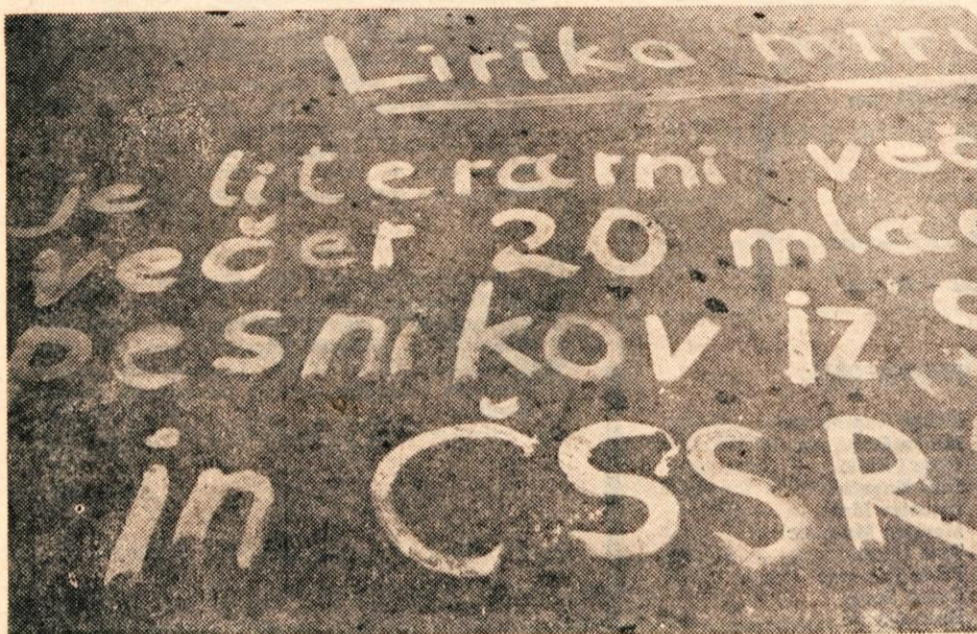 Lirika miru
je literarni več
večer 20 mlad
pesnikov iz S
in ČSSR